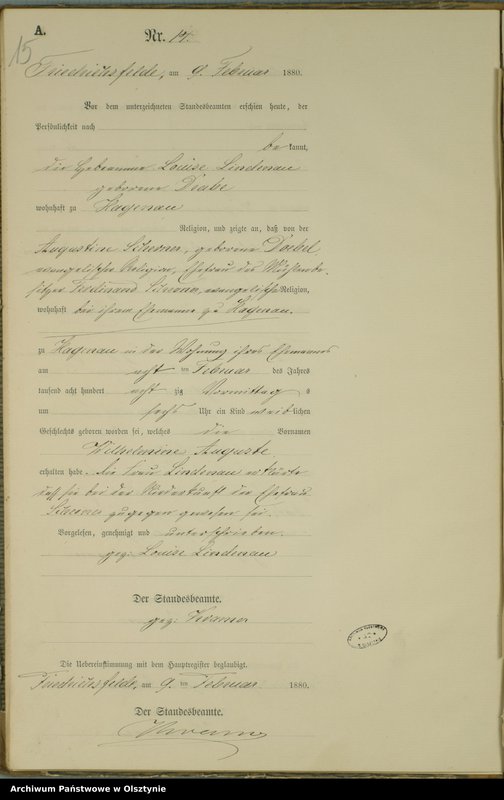 A.
15
Nr. 14.
Friedrichsfelde, am 9. Februar 1880.
Vor dem unterzeichneten Standesbeamten erschien heute, der
Persönlichkeit nach
be kannt,
die Hebeamme Louise Lindenau
geborene
wohnhaft zu Hagenau
Religion, und zeigte an, daß von der
Auguste geborene
evangelischer Religion, Ehefrau des
Ferdinand evangelischer Religion,
wohnhaft bei ihrem Ehemanne zu Hagenau.
zu Hagenau in der Wohnung ihres Ehemannes
am acht ten Februar des Jahres
tausend acht hundert acht zig Vormittag s
um sechs Uhr ein Kind weib lichen
Geschlechts geboren worden sei, welches die Vornamen
Wilhelmine Auguste
erhalten habe. Die Frau Lindenau erklärte
daß sie bei der Niederkunft der Ehefrau
zugegen gewesen sei.
Vorgelesen, genehmigt und unterschrieben.
gez: Louise Lindenau
Der Standesbeamte.
gez:
Die Uebereinstimmung mit dem Hauptregister beglaubigt.
Friedrichsfelde, am 9. ten Februar 1880.
Der Standesbeamte.
Archiwum Państwowe w Olsztynie